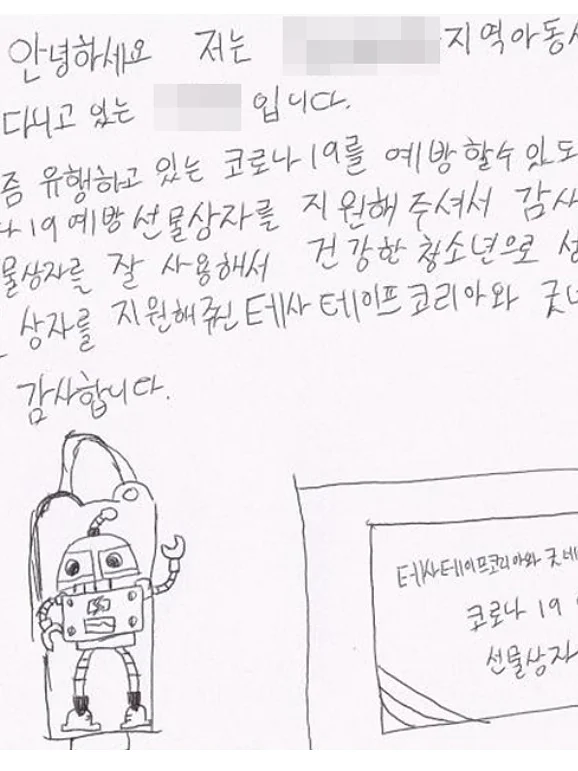 안녕하세요 저는 지역아동
다니고 있는 입니다.
즘 유행하고 있는 코로나19를 예방할수 있도
나19예방선물상자를 지원해주셔서 감사
물상자를 잘 사용해서 건강한 청소년으로
상자를 지원해주신 테사테이프코리아와 굿
감사합니다.
테사테이프코리아와 굿네
코로나 19
선물상자